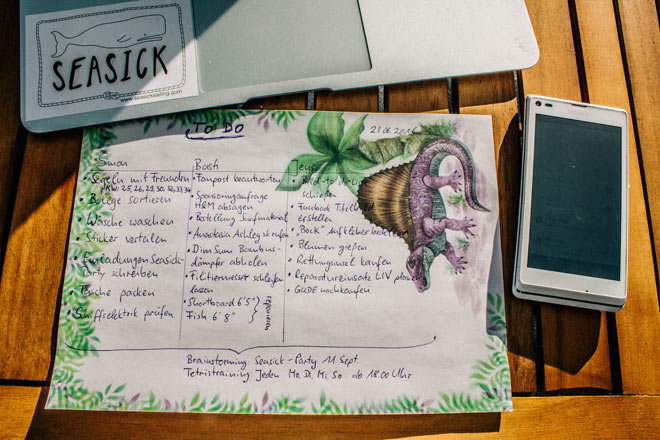 SEASICK
www.seasicksailing.com
TO DO
23.08.2016
Simon
• Segeln mit Freunden
KW: 25, 26, 29, 30, 32, 33, 34
• Belege sortieren
• Wäsche waschen
• Sticker verteilen
• Einladungen Seasick-
Party schreiben
• Tasche packen
• Schiffselektrik prüfen
Basti
• Fanpost beantworten
• Sponsoringanfrage
H&M absagen
• Bestellung Surfmaterial
• Anastasia Ashley
• Dim Sum Bambus-
dämpfer abholen
• Filitiermesser schleifen
lassen
• Shortboard 6'5"
Fish 6'8"
reparieren
schießen
• Facebook Titelbild
erstellen
• "Bock" Aufkleber bestellen
• Blumen gießen
• Rettungsinsel kaufen
• Reparatureinsatz LIV planen
• GUDE nochkaufen
Brainstorming: Seasick-Party 11 Sept.
Tetristraining: Jeden Mo, Di, Mi, So ab 18.00 Uhr
SONY